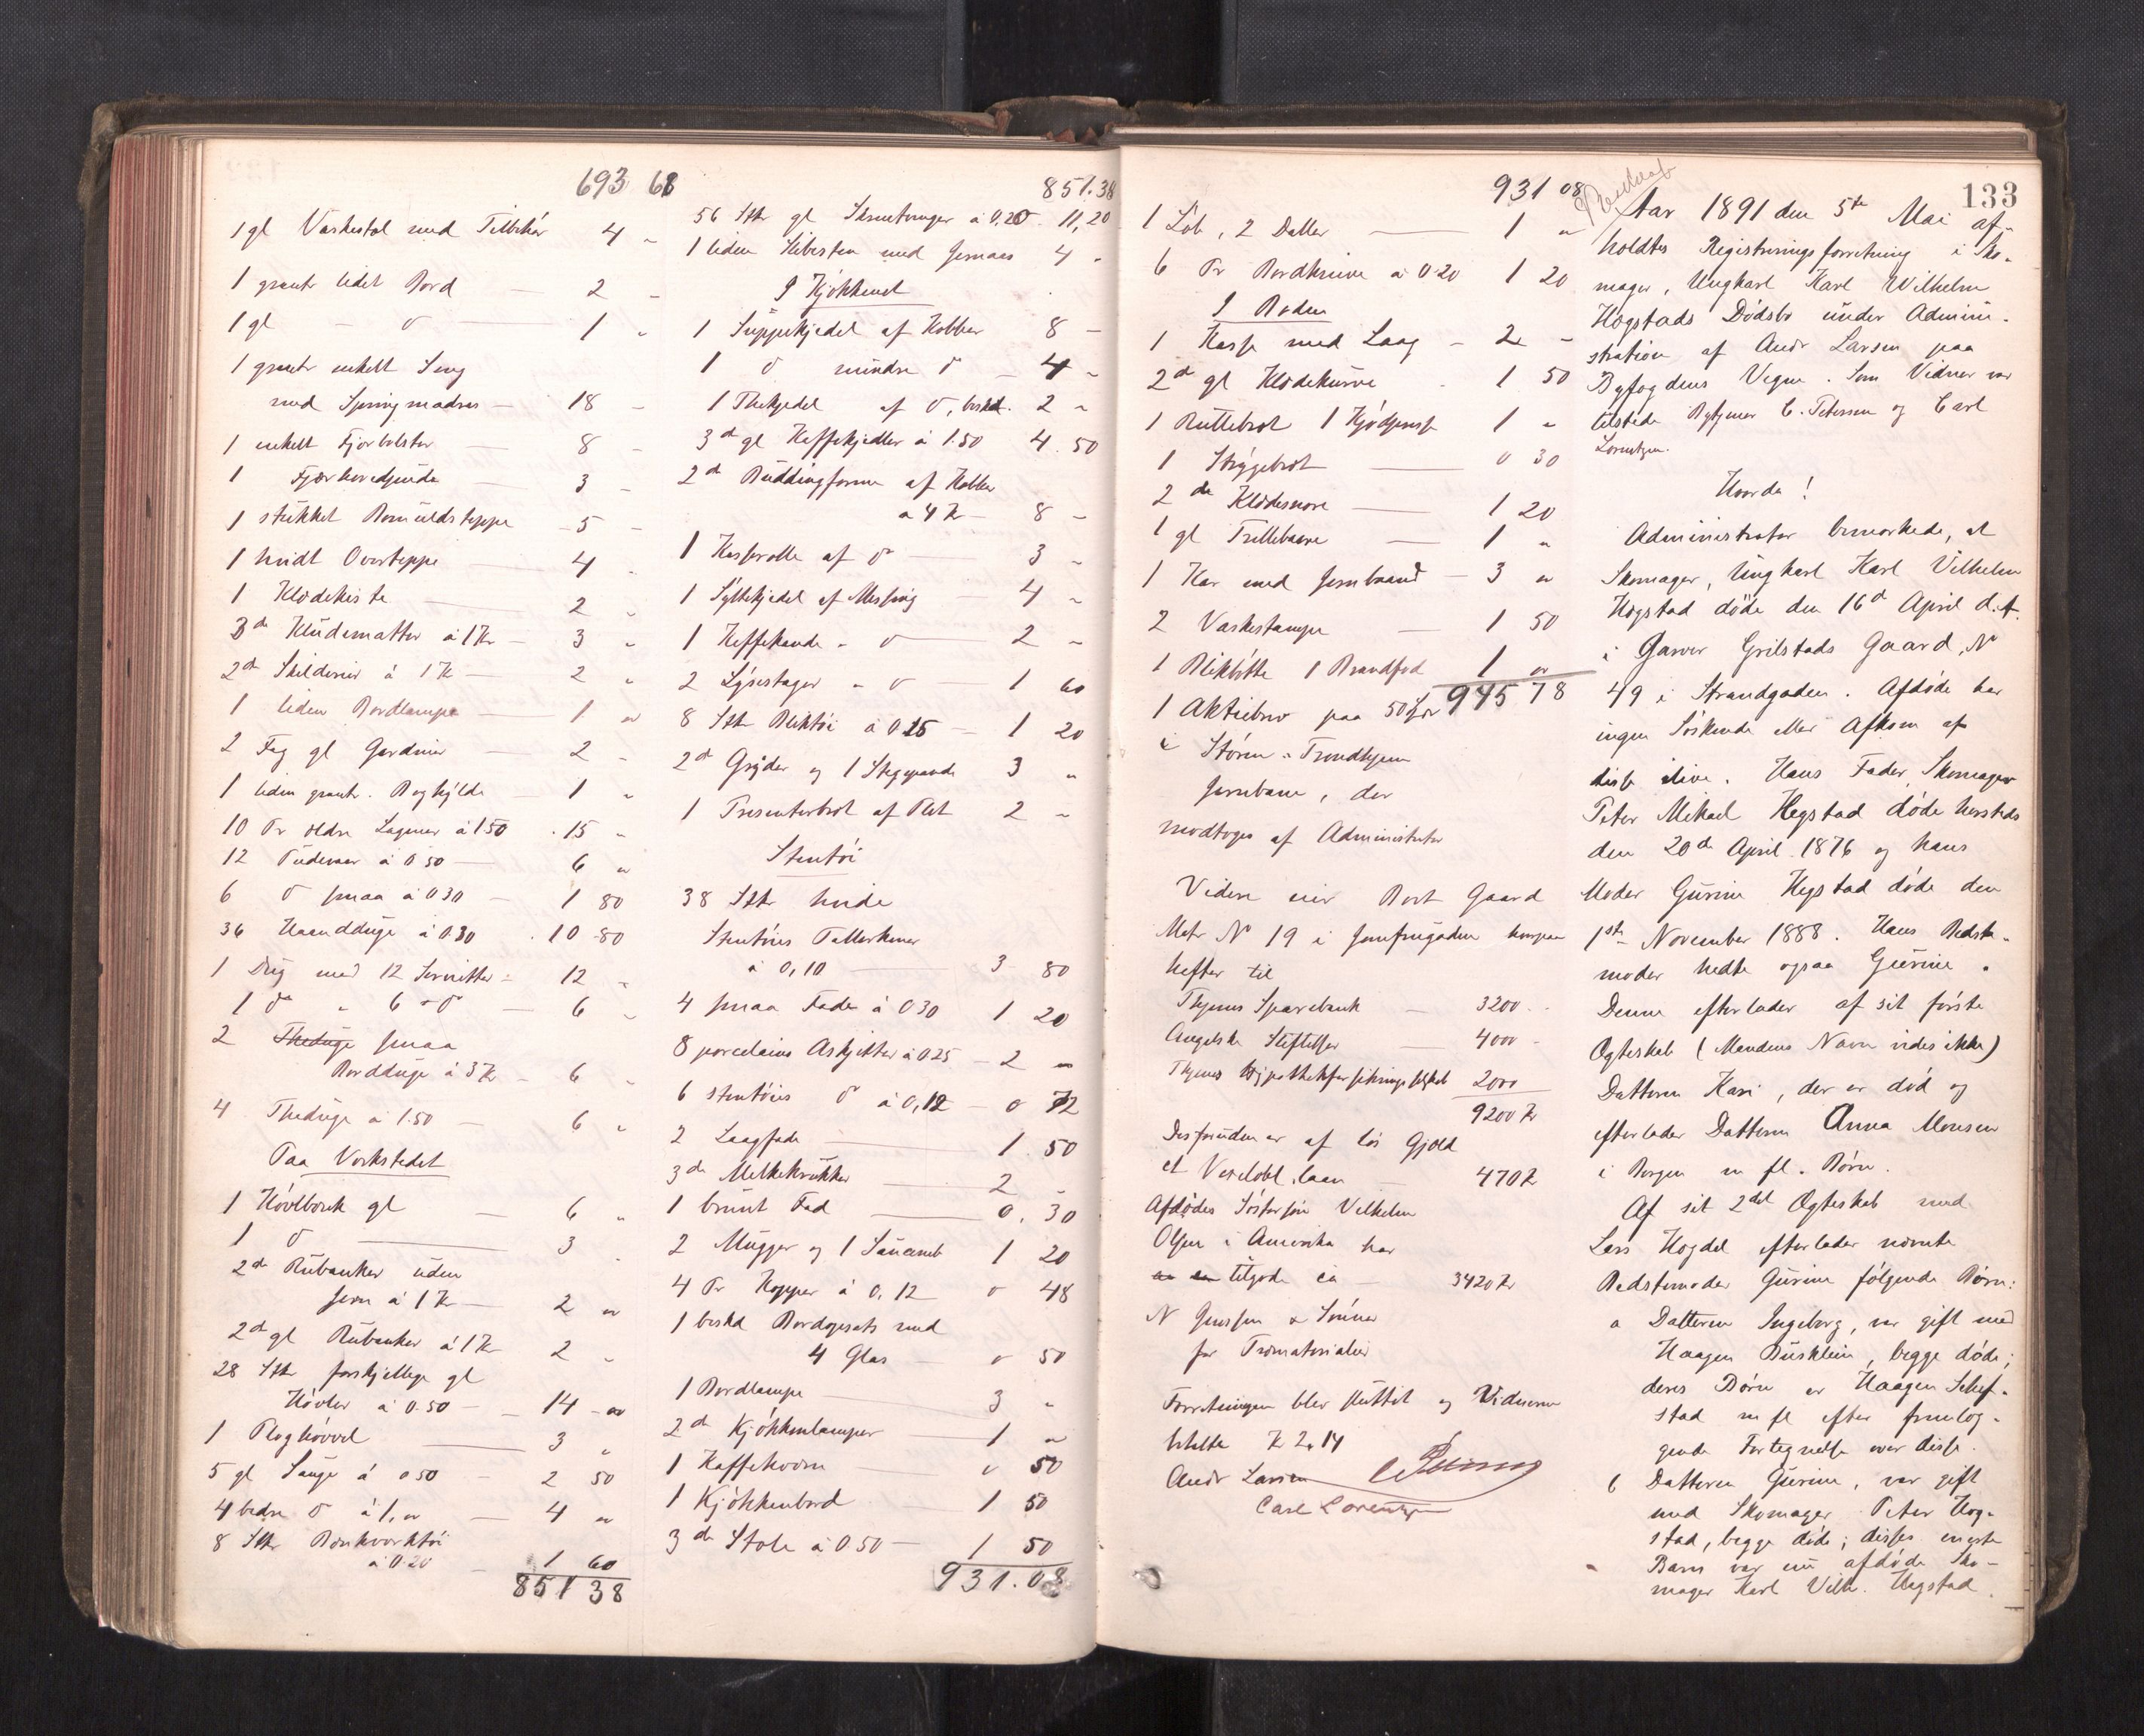 693 68
1 gl Vaskestol med Tilbehør 4 "
1 grønt lidet Bord 2 "
1 gl - do 1 "
1 enkelt Seng
med Springmadras 18 -
1 enkelt Fjorbolster 8 -
1 Fjærhovedpude 3 -
1 stukket Bomuldsteppe 5 -
1 hvidt Overteppe 4 -
1 Klædekiste 2 "
3de Kludematter á 1 Kr 3 "
2de Skilderier á 1 K 2 "
1 liden Bordlampe 1 "
2 Fag gl Gardiner 2 -
1 liden Boghylde 1 "
10 Pr ældre Lagener á 150 15 "
12 Pudevaar á 050 6 "
6 do smaa á 030 1 80
36 Haandduge á 0.30 10 80
1 Dug med 12 Servietter 12 "
1 do " 6 do 6 "
2 smaa
Bordduge á 3 Kr 6 "
4 Theduge á 1.50 6 "
Paa Verkstedet
1 Høvlbænk gl 6 "
1 do 3 "
2de Rubanker uden
Jern á 1 Kr 2 "
2de gl Rubanker á 1 Kr 2 "
28 Stk forskjellige gl
Høvler á 0.50 14 "
1 Ploghøvel 3 "
5 gl Sauge á 050 2 50
4 bedre do á 1, " 4 "
8 Stk Bænkverktøi
á 0.20 1 60
851 38
851.38
56 Stk gl Skrutvinger á 0,20 11,20
1 liden Slibesten med 4 "
I Kjøkkenet
1 Suppekjedel af Kobber 8 -
1 do mindre do 4 "
1 Thekjedel af do, beskd. 2 "
3de gl Kaffekjedler á 1.50 4.50
2de Buddingforme af Kobber
a 4 Kr 8 -
1 Kasserolle af do 3 "
1 Syltekjedel af Messing 4 "
1 Kaffekande " do 2 "
2 Lysestager " do 1 60
8 Stk Bliktøi á 015 1 20
2de Gryder og 1 Stegepande 3 "
1 Presenterbrot af Blik 2 "
Stentøi
38 Stk hvide
Stentøies Tallerkener
á 0,10 3 80
4 smaa Fade á 030 1 20
8 porcelains Asjetter á 025 2 "
6 stentøies do á 0,12 0 72
2 Laagfade 1.50
3de Melkekrukker 2 -
1 brunt Fad 0.30
2 Mugger og 1 1 20
4 Pr Kopper á 0,12 0 48
1 beskd Bordopsats med
4 Glas 0 50
1 Bordlampe 3 "
2de Kjøkkenlamper 1 "
1 Kaffekvern 0 50
1 Kjøkkenbord 1 50
3de Stole á 050 1 50
931.08
931 08
1 , 2 1 "
6 Pr Bordknive á 020 1 20
I Boden
1 Kasse med Laag 2 -
2de gl Klædekurve 1 50
1 Rullebrot 1 1 "
1 Strygebrot 0 30
2de Klædesnore 1 20
1 gl Trillebaare 1 "
1 Kar med Jernbaand 3 "
2 Vaskestamper 1 50
1 Blikbøtte 1 Brandspd 1 "
945 78
1 Aktiebrev paa 50 Spdr
i Støren-Trondhjem
Jernbane, der
modtoges af Administrator
Videre eier Boet Gaard
Matr No 19 i Jomfrugaden hvorpaa
hefter til
Thjems Sparebank 3200 -
Angelske Stiftelse 4000 -
Thjems Hypothekforsikringsselskab 2000
9200 Kr
Desforuden er af løs Gjæld
et Vexelobl.laan 470 Kr
Afdødes Søstersøn Vilhelm
Olsen i Amerika har
tilgode ca 3420 Kr
N Jenssen & Sønner
for Træmaterialier
Forretningen blev sluttet og Vidnerne
betalte K 2.14
Andr Larsen
Carl Lorentzen
133
Aar 1891 den 5te Mai af-
holdtes Registreringsforretning i Sko-
mager, Ungkarl Karl Wilhelm
Høgstads Dødsbo under Admini-
stration af Andr Larsen paa
Byfogdens Vegne. Som Vidner var
tilstede C. Petersen og Carl
Lorentzen.
Hvorda!
Administrator bemærkede, at
Skomager, Ungkarl Karl Vilhelm
Høgstad døde den 16de April d.A.
i Garver Grilstads Gaard, No
49 i Strandgaden. Afdøde har
ingen Søskende eller Afkom af
disse ilive. Hans Fader, Skomager
Peter Mikael Hegstad døde hersteds
den 20de April 1876 og hans
Moder Gurine Hegstad døde den
1ste November 1888. Hans Bedste-
moder hedte ogsaa Gurine.
Denne efterlader af sit første
Ægteskab (Mandens Navn vides ikke)
Datteren Kari, der er død og
efterlader Datteren Anna Monsen
i Bergen m fl. Børn.
Af sit 2det Ægteskab med
Lars Hogdel efterlader nævnte
Bedstemoder Gurine følgende Børn:
a Datteren Ingeborg, var gift med
Haagen Busklein, begge døde;
deres Børn er Haagen Schef-
stad m fl efter fremlæg-
gende Fortegnelse over disse.
b Datteren Gurine, var gift
med Skomager Peter Høg-
stad, begge døde; disses eneste
Barn var nu afdøde Sko-
mager Karl Vilh. Hegstad.